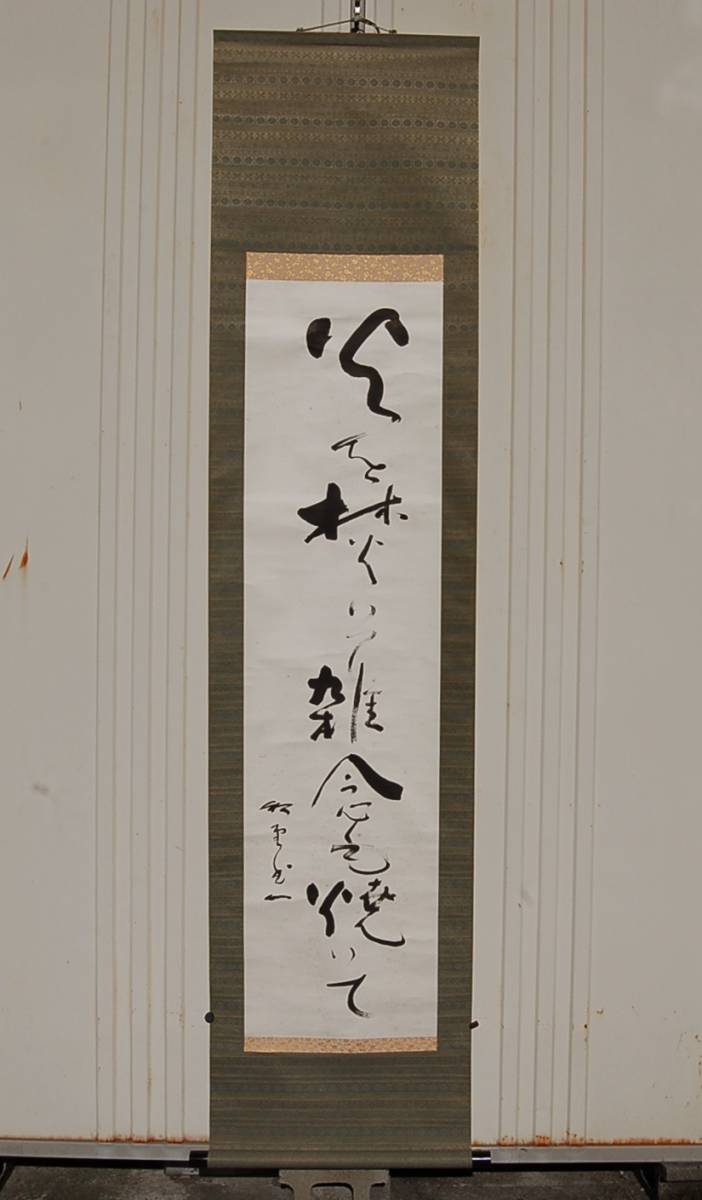 火を焚いて雑念も焼いて